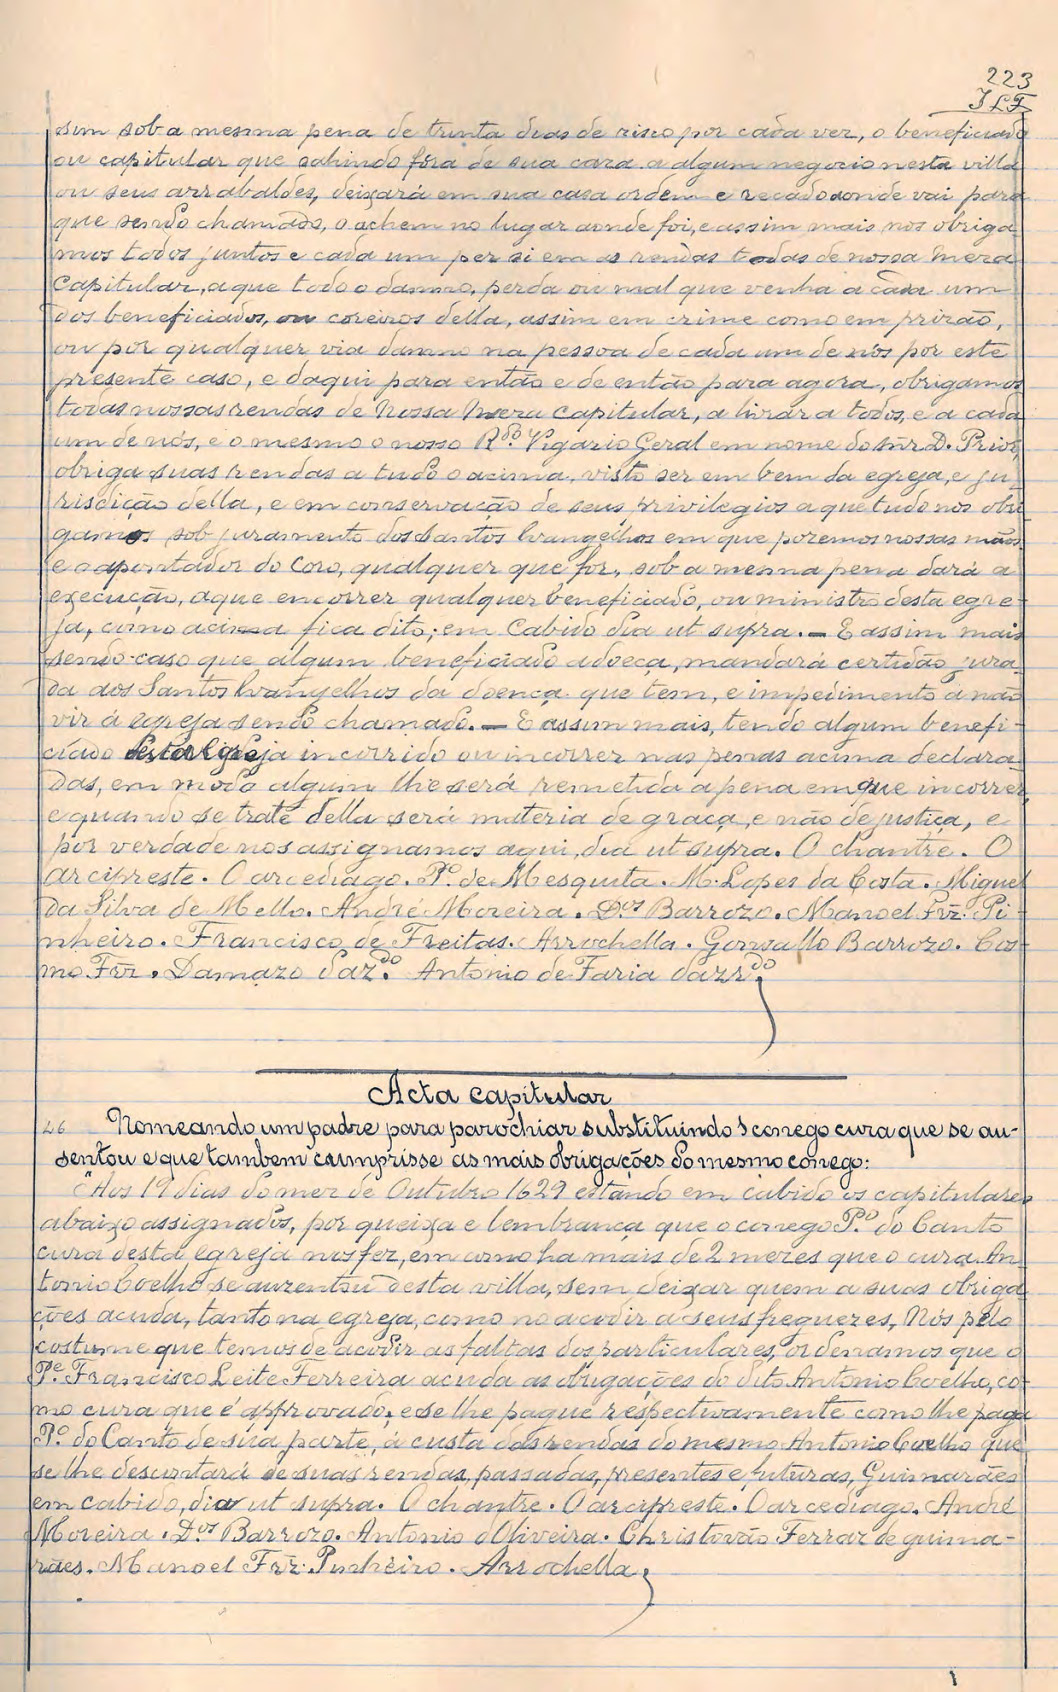 223
JLF
sim sob a mesma pena de trinta dias de risco por cada vez, o beneficiado
ou capitular que sahindo fóra de sua caza a algum negocio nesta villa
ou seus arrabaldes, deixará em sua casa ordem e recado aonde vai para
que sendo chamado, o achem no lugar aonde foi, e assim mais nos obriga
mos todos juntos e cada um per si em as rendas todas de nossa Meza
Capitular, a que todo o damno, perda ou mal que venha a cada um
dos beneficiados, ou coreiros della, assim em crime como em prizão,
ou por qualquer via damno na pessoa de cada um de nós por este
presente caso, e daqui para então e de então para agora, obrigamos
todas nossas rendas de Nossa Meza Capitular, a livrar a todos, e a cada
um de nós, e o mesmo o nosso R.do Vigario Geral em nome do snr D. Prior,
obriga suas rendas a tudo o acima, visto ser em bem da egreja, e ju_
risdição della, e em conservação de seus privilegios a que tudo nos obri
gamos sob juramento dos Santos Evangelhos em que pozemos nossas mãos
e o apontador do Coro, qualquer que for, sob a mesma pena dará a
execução, a que encorrer qualquer beneficiado, ou ministro desta egre-
ja, como acima fica dito; em Cabido dia ut supra. — E assim mais
sendo caso que algum beneficiado adoeça, mandará certidão jura_
da aos Santos Evangelhos da doença que tem, e impedimento a não
vir á egreja sendo chamado. — E assim mais, tendo algum benefi-
ciado desta Egreja incorrido ou incorrer nas penas acima declara_
das, em modo algum lhe será remetida a pena em que incorrer,
e quando se trate della será materia de graça, e não de justiça, e
por verdade nos assignamos aqui, dia ut supra. O chantre. O
arcipreste. O arcediago. P.o de Mesquita. M. Lopes da Costa. Miguel
da Silva de Mello. André Moreira. D.os Barrozo. Manoel Frz. Pi-
nheiro. Francisco de Freitas. Arrochella. Gonsallo Barrozo. Cos-
mo Frz. Damazo daz.do Antonio de Faria dazr.do
Acta capitular
26 Nomeando um padre para parochiar substituindo o conego cura que se au-
sentou e que tambem cumprisse as mais obrigações do mesmo conego:
"Aos 19 dias do mez de Outubro 1629 estando em cabido os capitulares
abaixo assignados, por queixa e lembrança que o conego P.o do Canto
cura desta egreja nos fez, em como ha mais de 2 mezes que o cura An_
tonio Coelho se auzentou desta villa, sem deixar quem a suas obriga
ções acuda, tanto na egreja, como no acodir a seus freguezes, Nós pelo
costume que temos de acodir as faltas dos particulares, ordenamos que o
P.e Francisco Leite Ferreira acuda as obrigações do dito Antonio Coelho, co-
mo cura que é approvado, e se lhe pague respectivamente como lhe paga
P.o do Canto de sua parte, á custa das rendas do mesmo Antonio Coelho que
se lhe descontará de suas rendas, passadas, presentes e futuras, Guimarães
em cabido, dia ut supra. O chantre. O arcipreste. O arcediago. André
Moreira. D.os Barrozo. Antonio d'Oliveira. Christovão Ferraz de guima-
rães. Manoel Frz. Pinheiro. Arrochella